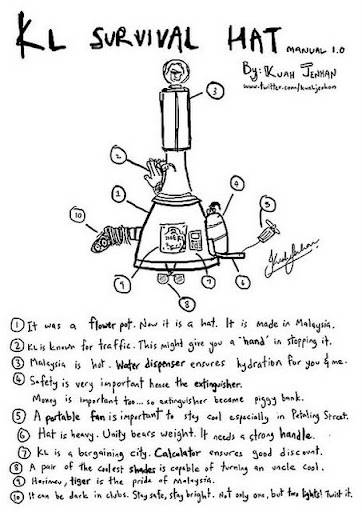 KL SURVIVAL HAT MANUAL 1.0
By: KUAH JENHAN
www.twitter.com/kuahjenhan
3
2
1
4
5
10
9
8
7
6
Kuah Jenhan
1 It was a flower pot. Now it is a hat. It is made in Malaysia.
2 KL is known for traffic. This might give you a 'hand' in stopping it.
3 Malaysia is hot. Water dispenser ensures hydration for you & me.
4 Safety is very important hence the extinguisher.
Money is important too... so extinguisher became piggy bank.
5 A portable fan is important to stay cool especially in Petaling Street.
6 Hat is heavy. Unity bears weight. It needs a strong handle.
7 KL is a bargaining city. Calculator ensures good discount.
8 A pair of the coolest shades is capable of turning an uncle cool.
9 Harimau, tiger is the pride of Malaysia.
10 It can be dark in clubs. Stay safe, stay bright. Not only one, but two lights! Twist it.